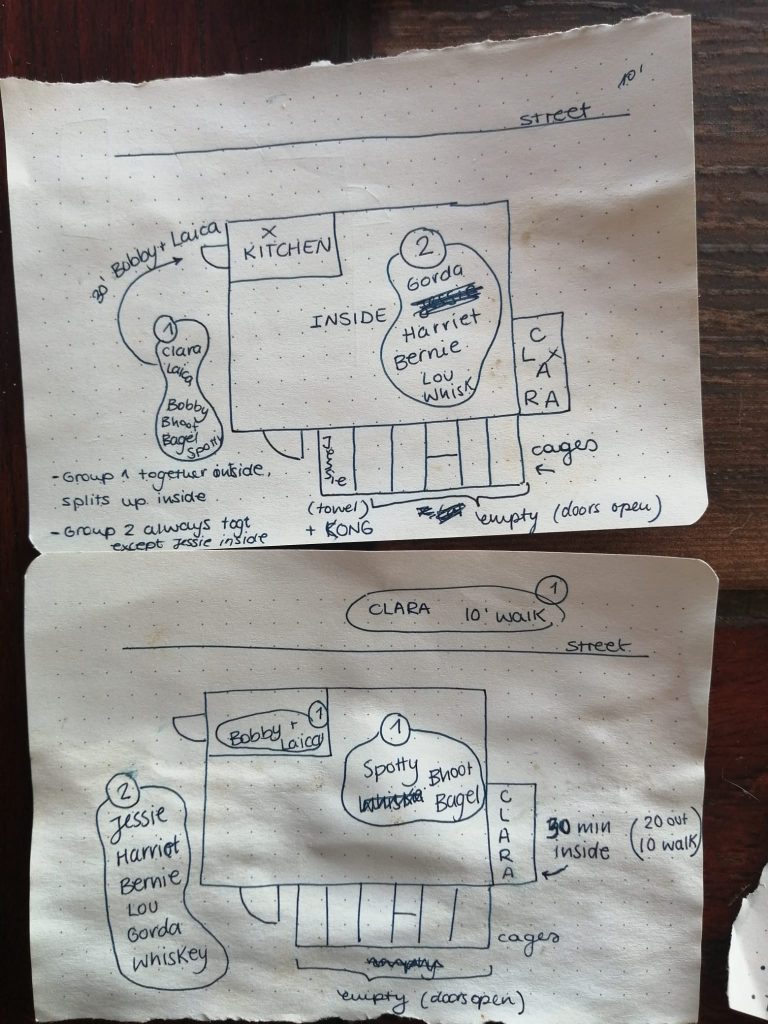 10'
street
30' Bobby + Laica
X
KITCHEN
2
Gorda
INSIDE
Harriet
Bernie
Lou
Whisk
1
Clara
Laica
Bobby
Bhoot
Bagel
Spotty
X
CLARA
Jessie
cages
- Group 1 together outside,
splits up inside
(towel)
+ KONG
empty (doors open)
- Group 2 always togt
except Jessie inside
1
CLARA 10' walk
street
1
Bobby +
Laica
1
Spotty
Bhoot
Bagel
2
Jessie
Harriet
Bernie
Lou
Gorda
Whiskey
CLARA
30 min
inside
(20 out
10 walk)
cages
empty (doors open)